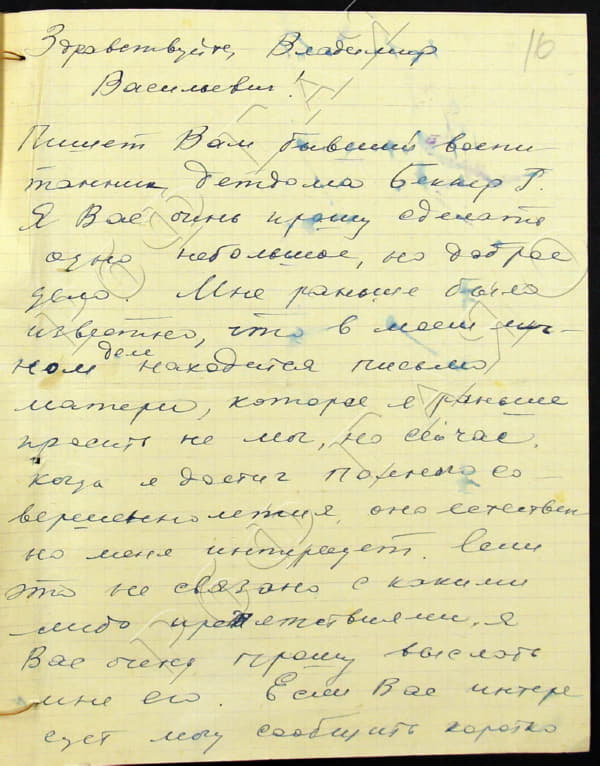 16
Здравствуйте, Владимир
Васильевич!
Пишет Вам бывший воспи-
танник детдома Беккер Г.
Я Вас очень прошу сделать
одно небольшое, но доброе
дело. Мне раньше было
известно, что в моем лич-
ном деле находится письмо
матери, которое я раньше
просить не мог, но сейчас,
когда я достиг полного со-
вершеннолетия, оно естествен
но меня интересует. Если
это не связано с какими
либо препятствиями, я
Вас очень прошу выслать
мне его. Если Вас интере
сует могу сообщить коротко